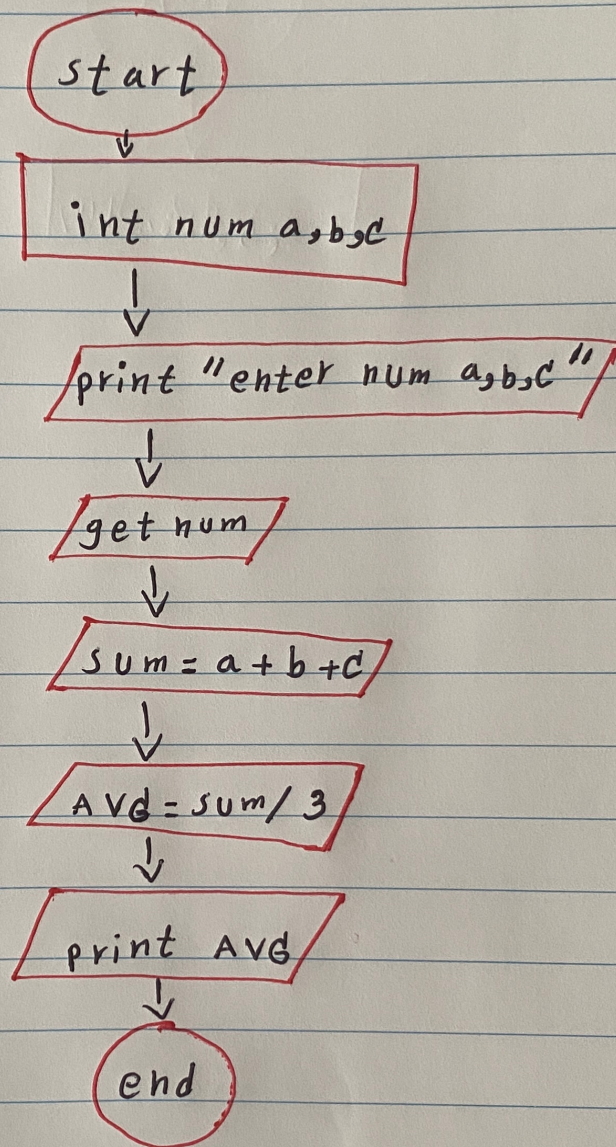 start
int num a,b,c
print "enter num a,b,c"
get num
sum = a + b + c
AVG = sum / 3
print AVG
end